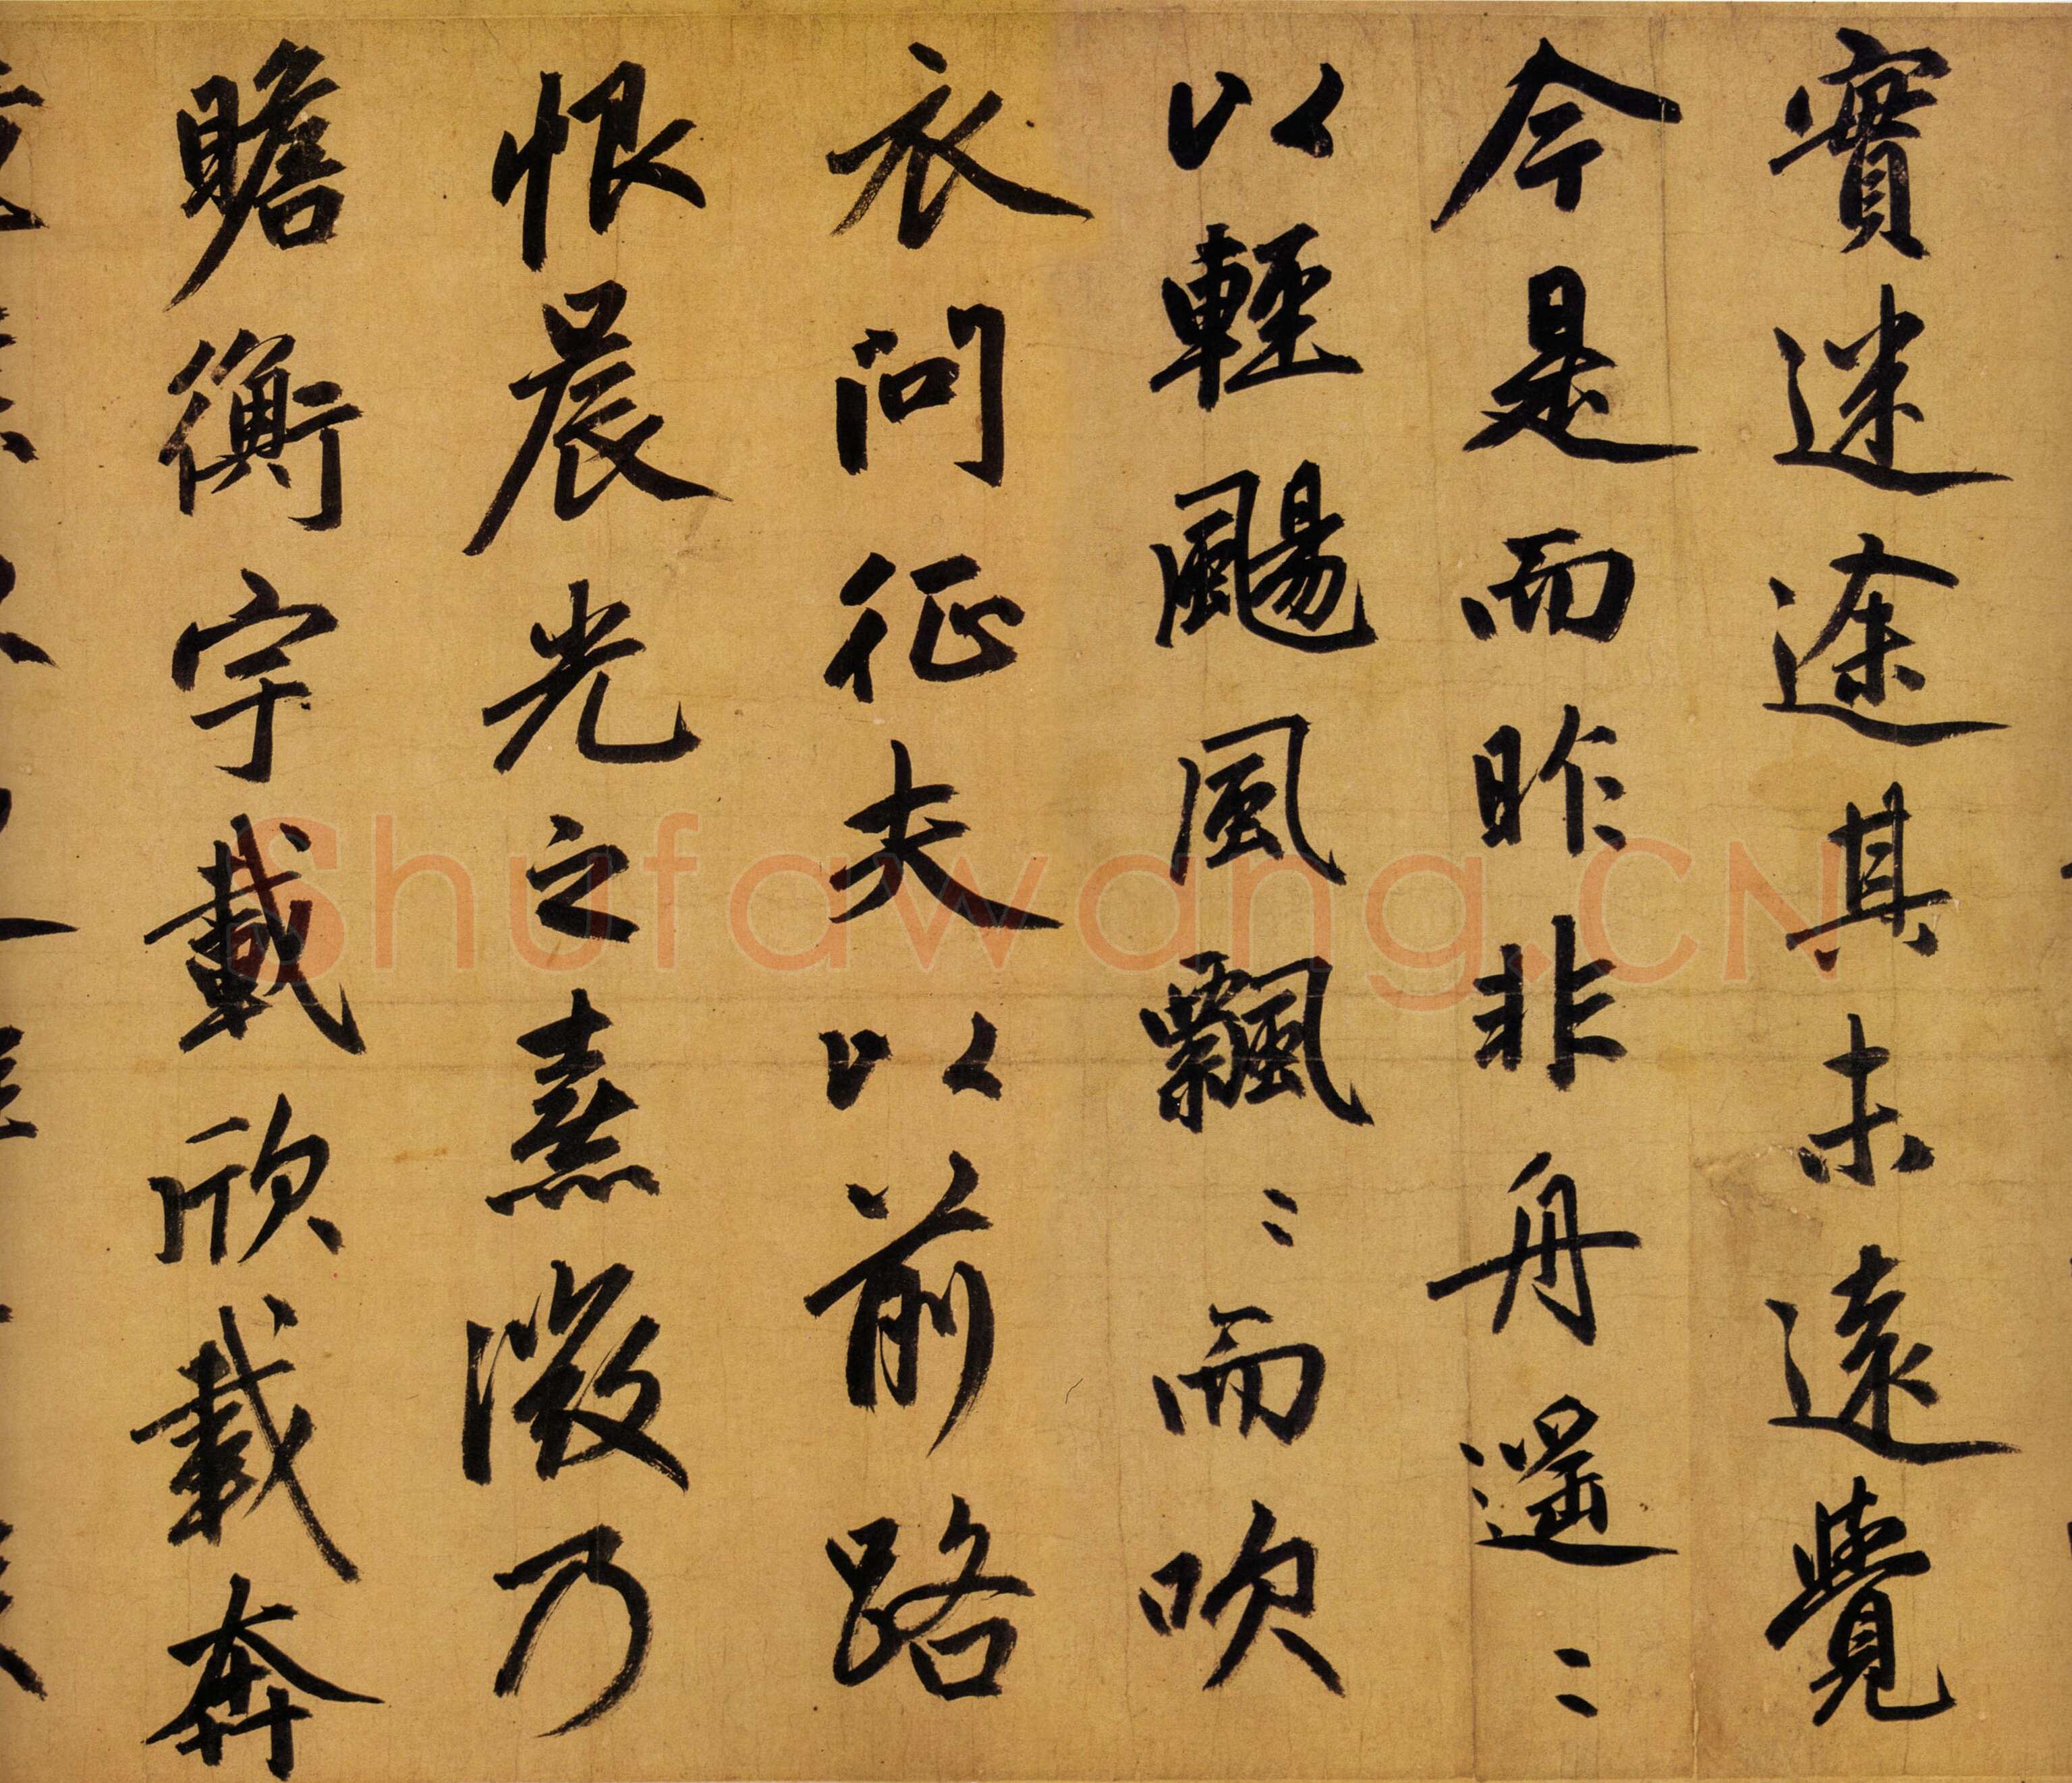 實迷途其未遠覺
今是而昨非舟遥〻
以輕颺風飄〻而吹
衣問征夫以前路
恨晨光之熹微乃
瞻衡宇載欣載奔
Shufawang.CN